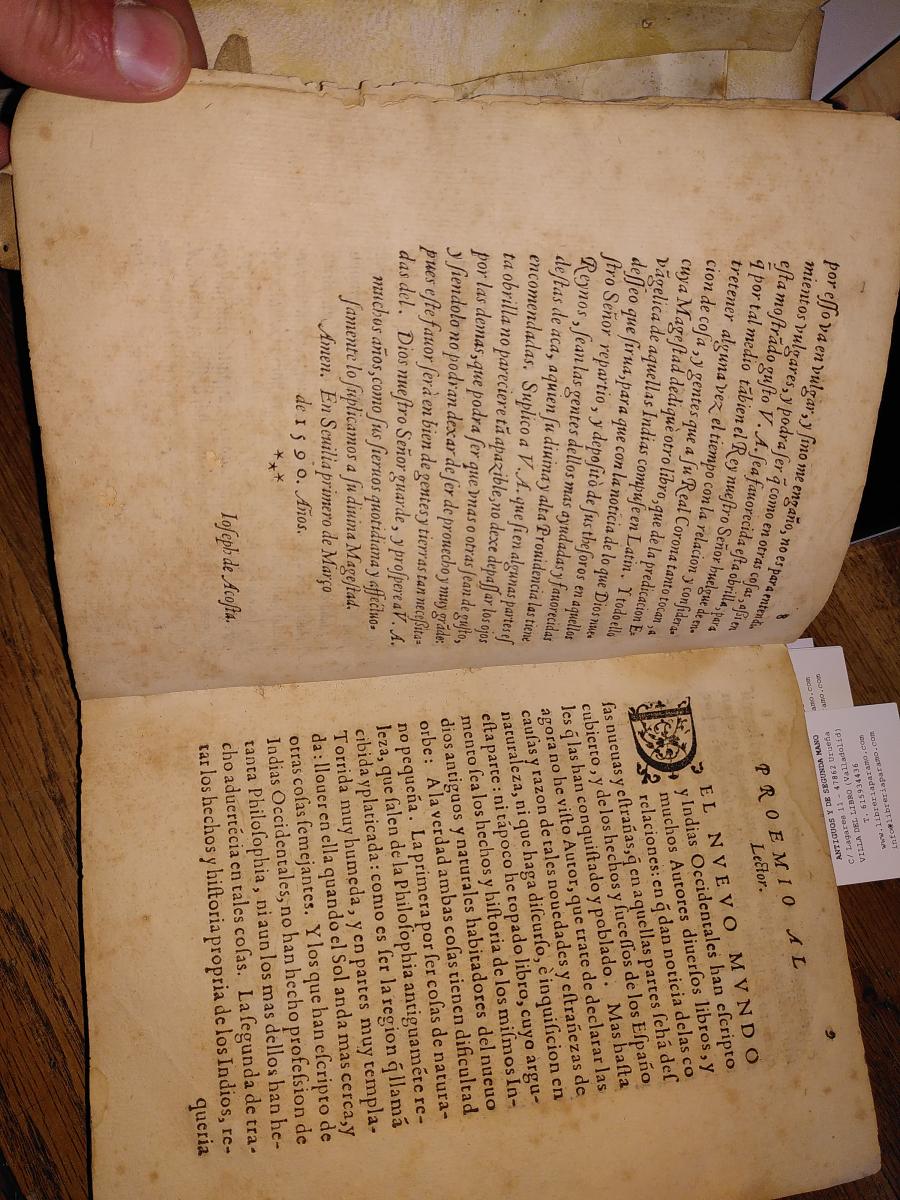 8
por eſſo va en vulgar, y ſino me engaño, no es para entendi-
mientos vulgares, y podra ſer q̃ como en otras coſas, aſsi en
eſta moſtrãdo guſto V. A. ſea fauorecida eſta obrilla,
q̃ por tal medio tãbien el Rey nueſtro Señor huelgue de en-
tretener alguna vez el tiempo con la relacion y conſidera-
cion de coſas, y gentes que a ſu Real Corona tanto tocan, a
cuya Mageſtad dediquè otro libro, que de la predicacion E-
vãgelica de aquellas Indias compuſe en Latin. Y todo ello
deſſeo que ſirua, para que con la noticia de lo que Dios nue-
ſtro Señor repartio, y depoſitò de ſus theſoros en aquellos
Reynos, ſean las gentes dellos mas ayudadas y fauorecidas
deſtas de aca, a quien ſu diuina y alta Prouidencia las tiene
encomendadas. Suplico a V. A. que ſi en algunas partes eſ
ta obrilla no pareciere tã apazible, no dexe de paſſar los ojos
por las demas, que podra ſer que vnas o otras ſean de guſto,
y ſiendolo no podran dexar de ſer de prouecho y muy grãde:
pues eſte fauor ſerà en bien de gentes y tierras tan neceſsita-
das del. Dios nueſtro Señor guarde, y proſpere a V. A.
muchos años, como ſus ſieruos quotidiana y affectuo-
ſamente lo ſuplicamos a ſu diuina Mageſtad.
Amen. En Seuilla primero de Março
de 1590. Años.
***
Ioſeph de Acoſta.
9
PROEMIO AL
Lector.
DEL NVEVO MVNDO
y Indias Occidentales han eſcripto
muchos Autores diuerſos libros, y
relaciones: en q̃ dan noticia de las co
ſas nueuas y eſtrañas, q̃ en aquellas partes ſe hã deſ
cubierto, y de los hechos y ſuceſſos de los Eſpaño
les q̃ las han conquiſtado y poblado. Mas haſta
agora no he viſto Autor, que trate de declarar las
cauſas y razon de tales nouedades y eſtrañezas de
naturaleza, ni que haga diſcurſo, è inquiſicion en
eſta parte: ni tãpoco he topado libro, cuyo argu-
mento ſea los hechos y hiſtoria de los miſmos In-
dios antiguos y naturales habitadores del nueuo
orbe: A la verdad ambas coſas tienen dificultad
no pequeña. La primera por ſer coſas de natura-
leza, que ſalen de la Philoſophia antiguamẽte re-
cibida y platicada: como es ſer la region q̃ llamã
Torrida muy humeda, y en partes muy templa-
da: llouer en ella quando el Sol anda mas cerca, y
otras coſas ſemejantes. Y los que han eſcripto de
Indias Occidentales, no han hecho profeſsion de
tanta Philoſophia, ni aun los mas dellos han he-
cho aduertẽcia en tales coſas. La ſegunda de tra-
tar los hechos y hiſtoria propria de los Indios, re-
queria
VILLA DEL LIBRO
T. 615195436
ANTIGUOS Y DE SEGUNDA MANO